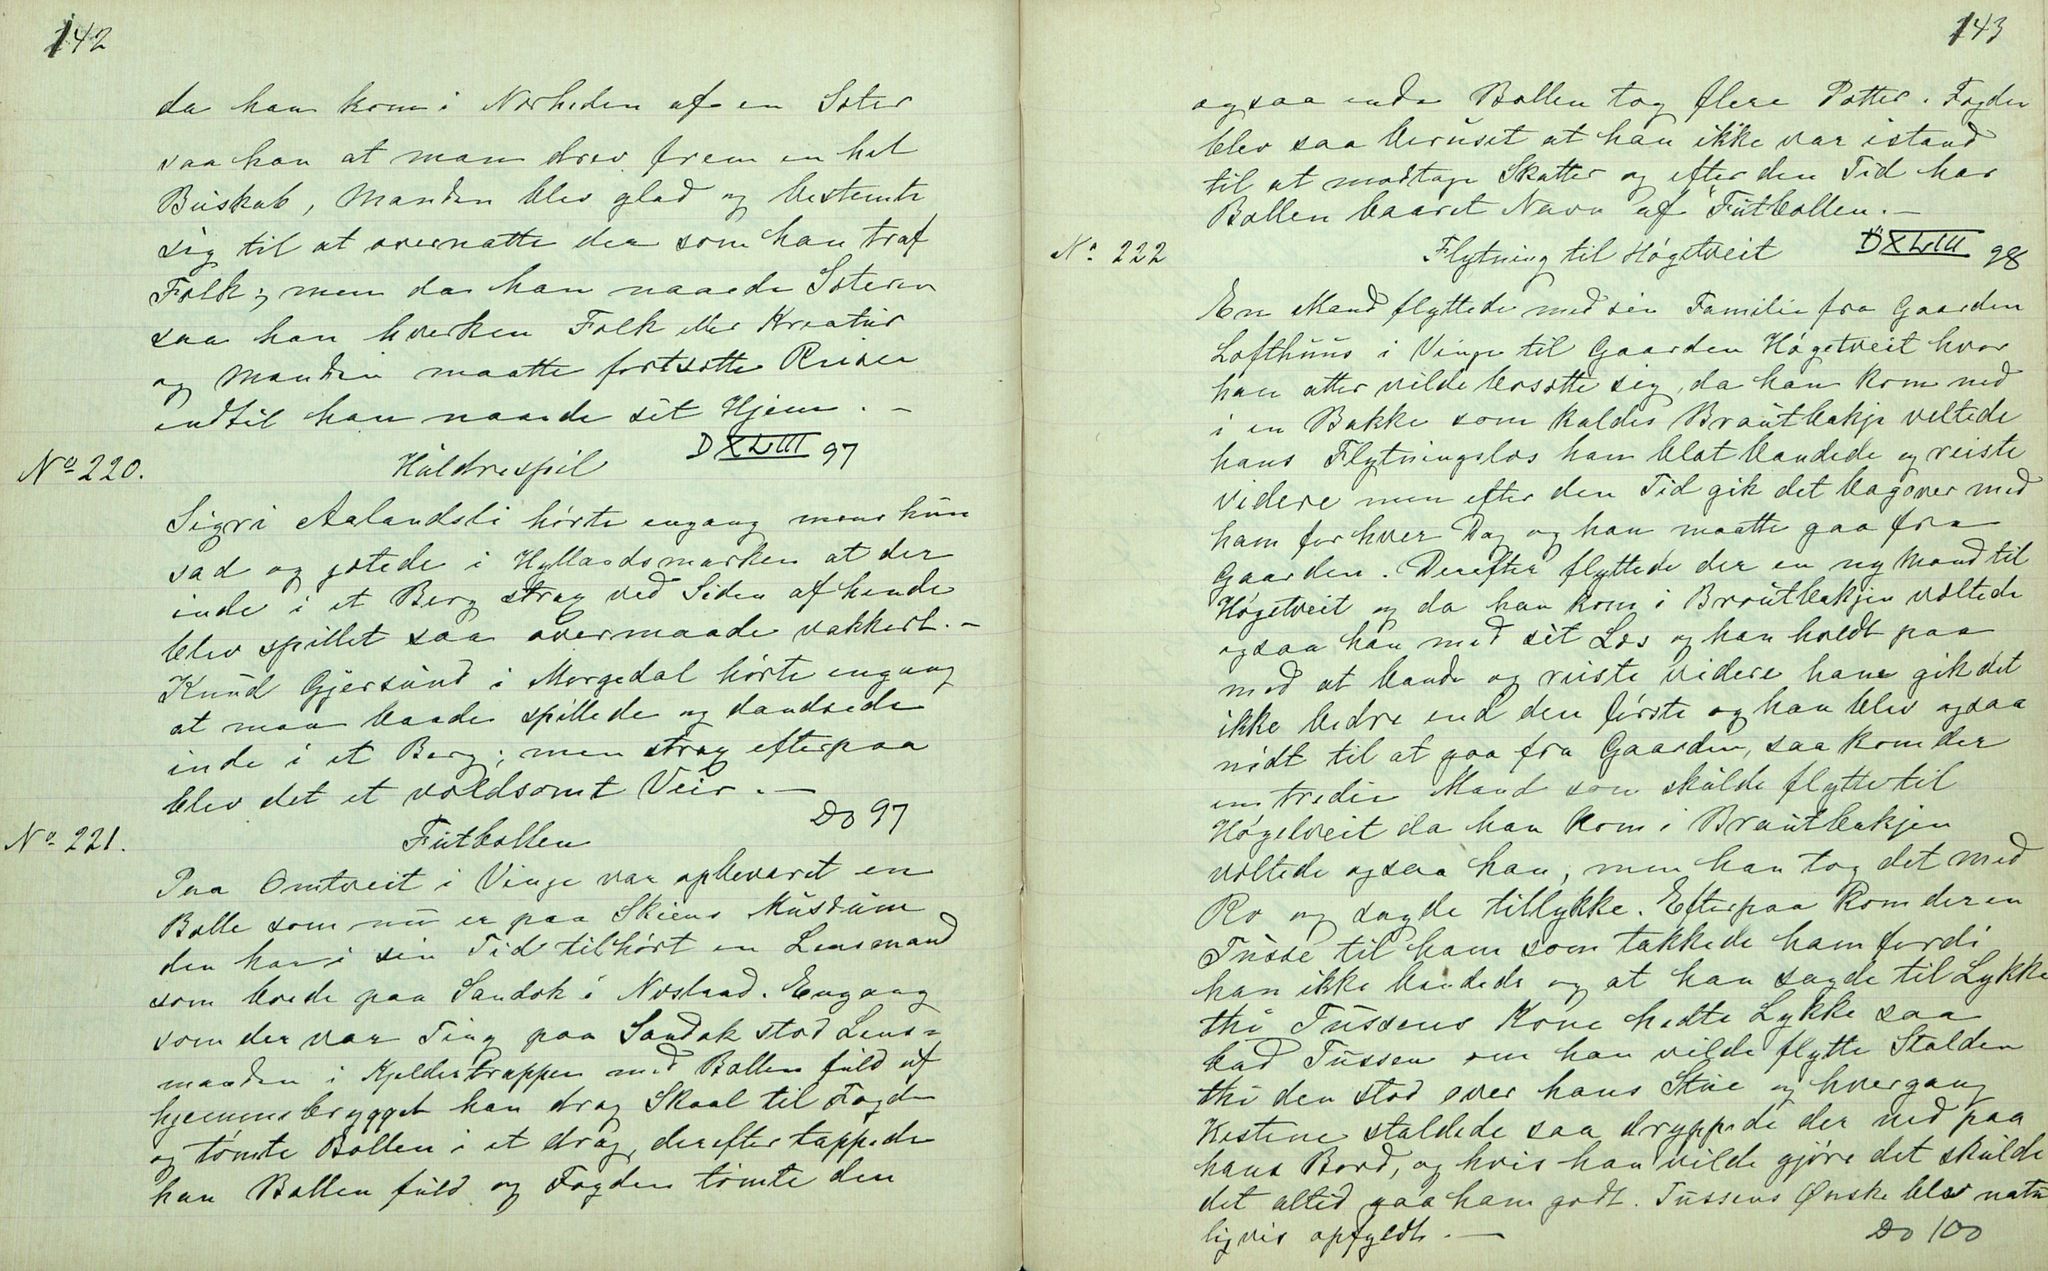 142
da han kom i Nærheden af en Sæter
saa han at man drev frem en hel
Buskab, Manden blev glad og bestemte
sig til at overnatte der som han traf
Folk; men da han naaede Sæteren
saa han hverken Folk eller Kreatur
og Manden maatte fortsætte Reisen
indtil han naaede sit Hjem. –
D XLIII 97
No 220. Huldrespil
Sigri Aalandsli hørte engang mens hun
sad og jætede i Hyllandsmarken at der
inde i et Berg strax ved Siden af hende
blev spillet saa overmaade vakkert. –
Knud Gjersund i Morgedal hørte engang
at man baade spillede og dandsede
inde i et Berg; men strax efterpaa
blev det et voldsomt Veir. –
Do 97
No 221. Futbollen
Paa Omtveit i Vinje var opbevaret en
Bolle som nu er paa Skiens Musæum
den har i sin Tid tilhørt en Lensmand
som boede paa Sandok i Nesland. Engang
som der var Ting paa Sandok stod Lens=
manden i Kjeldertrappen med Bollen fuld af
hjemmebrygget han drog Skaal til Fogden
og tømte Bollen i et drag, derefter tappede
han Bollen fuld og Fogden tømte den
143
ogsaa enda Bollen tog flere Potter. Fogden
blev saa beruset at han ikke var istand
til at modtage Skatter og efter den Tid har
Bollen baaret Navn af "Futbollen. –
D XLIII 98
No 222 Flytning til Høgetveit
En Mand flyttede med sin Familie fra Gaarden
Lofthuus i Vinje til Gaarden Høgetveit hvor
han atter vilde bosætte sig, da han kom ned
i en Bakke som kaldes Brautbakje veltede
hans Flytningslæs ham blot bandede og reiste
videre men efter den Tid gik det bagover med
ham for hver Dag og han maatte gaa fra
Gaarden. Derefter flyttede der en ny Mand til
Høgetveit og da han kom i Brautbakjen væltede
ogsaa han med sit Læs og han holdt paa
med at bande og reiste videre ham gik det
ikke bedre end den første og han blev ogsaa
nødt til at gaa fra Gaarden, saa kom der
en tredie Mand som skulde flytte til
Høgetveit da han kom i Brautbakjen
væltede ogsaa han, men han tog det med
Ro og sagde tillykke. Efterpaa kom der en
Tusse til ham som takkede ham fordi
han ikke bandede og at han sagde til Lykke
thi Tussens Kone hedte Lykke saa
bad Tussen om han vilde flytte Stalden
thi den stod over hans Stue og hvergang
Hestene staldede saa dryppede der ned paa
hans Bord, og hvis han vilde gjøre det skulde
det altid gaa ham godt. Tussens Ønske blev natu
ligvis opfyldt. –
Do 100